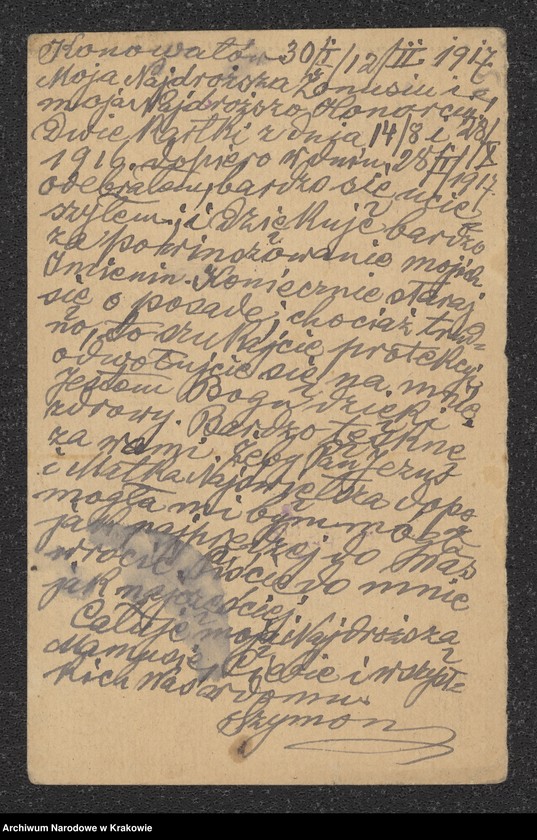 Konowałów 30/I/12/II 1917
Moja Najdroższa Żonusiu i
moja Najdroższo Honorciu,
Dwie Kartki z dnia 14/8 i 28/X
1916. dopiero w dniu 28/I/1917
odebrałem, bardzo się ucie-
szyłem i dziękuję bardzo
za powinszowanie moich
Imienin. Koniecznie staraj
się o posadę, chociaż trud-
no, to szukajcie protekcyi,
odwołujcie się na mnie
Jestem Bogu dzięki
zdrowy. Bardzo tęsknię
za wami. Żeby Pan Jezus
i Matka Najświętsza dopo
mogła mi bym mógł
jak najprędzej do Was
wrócić. Piszcie do mnie
jak najczęściej.
Całuję moją Najdroższą
Mamusię, Ciebie i wszyst-
kich Was w domu.
Szymon
Archiwum Narodowe w Krakowie